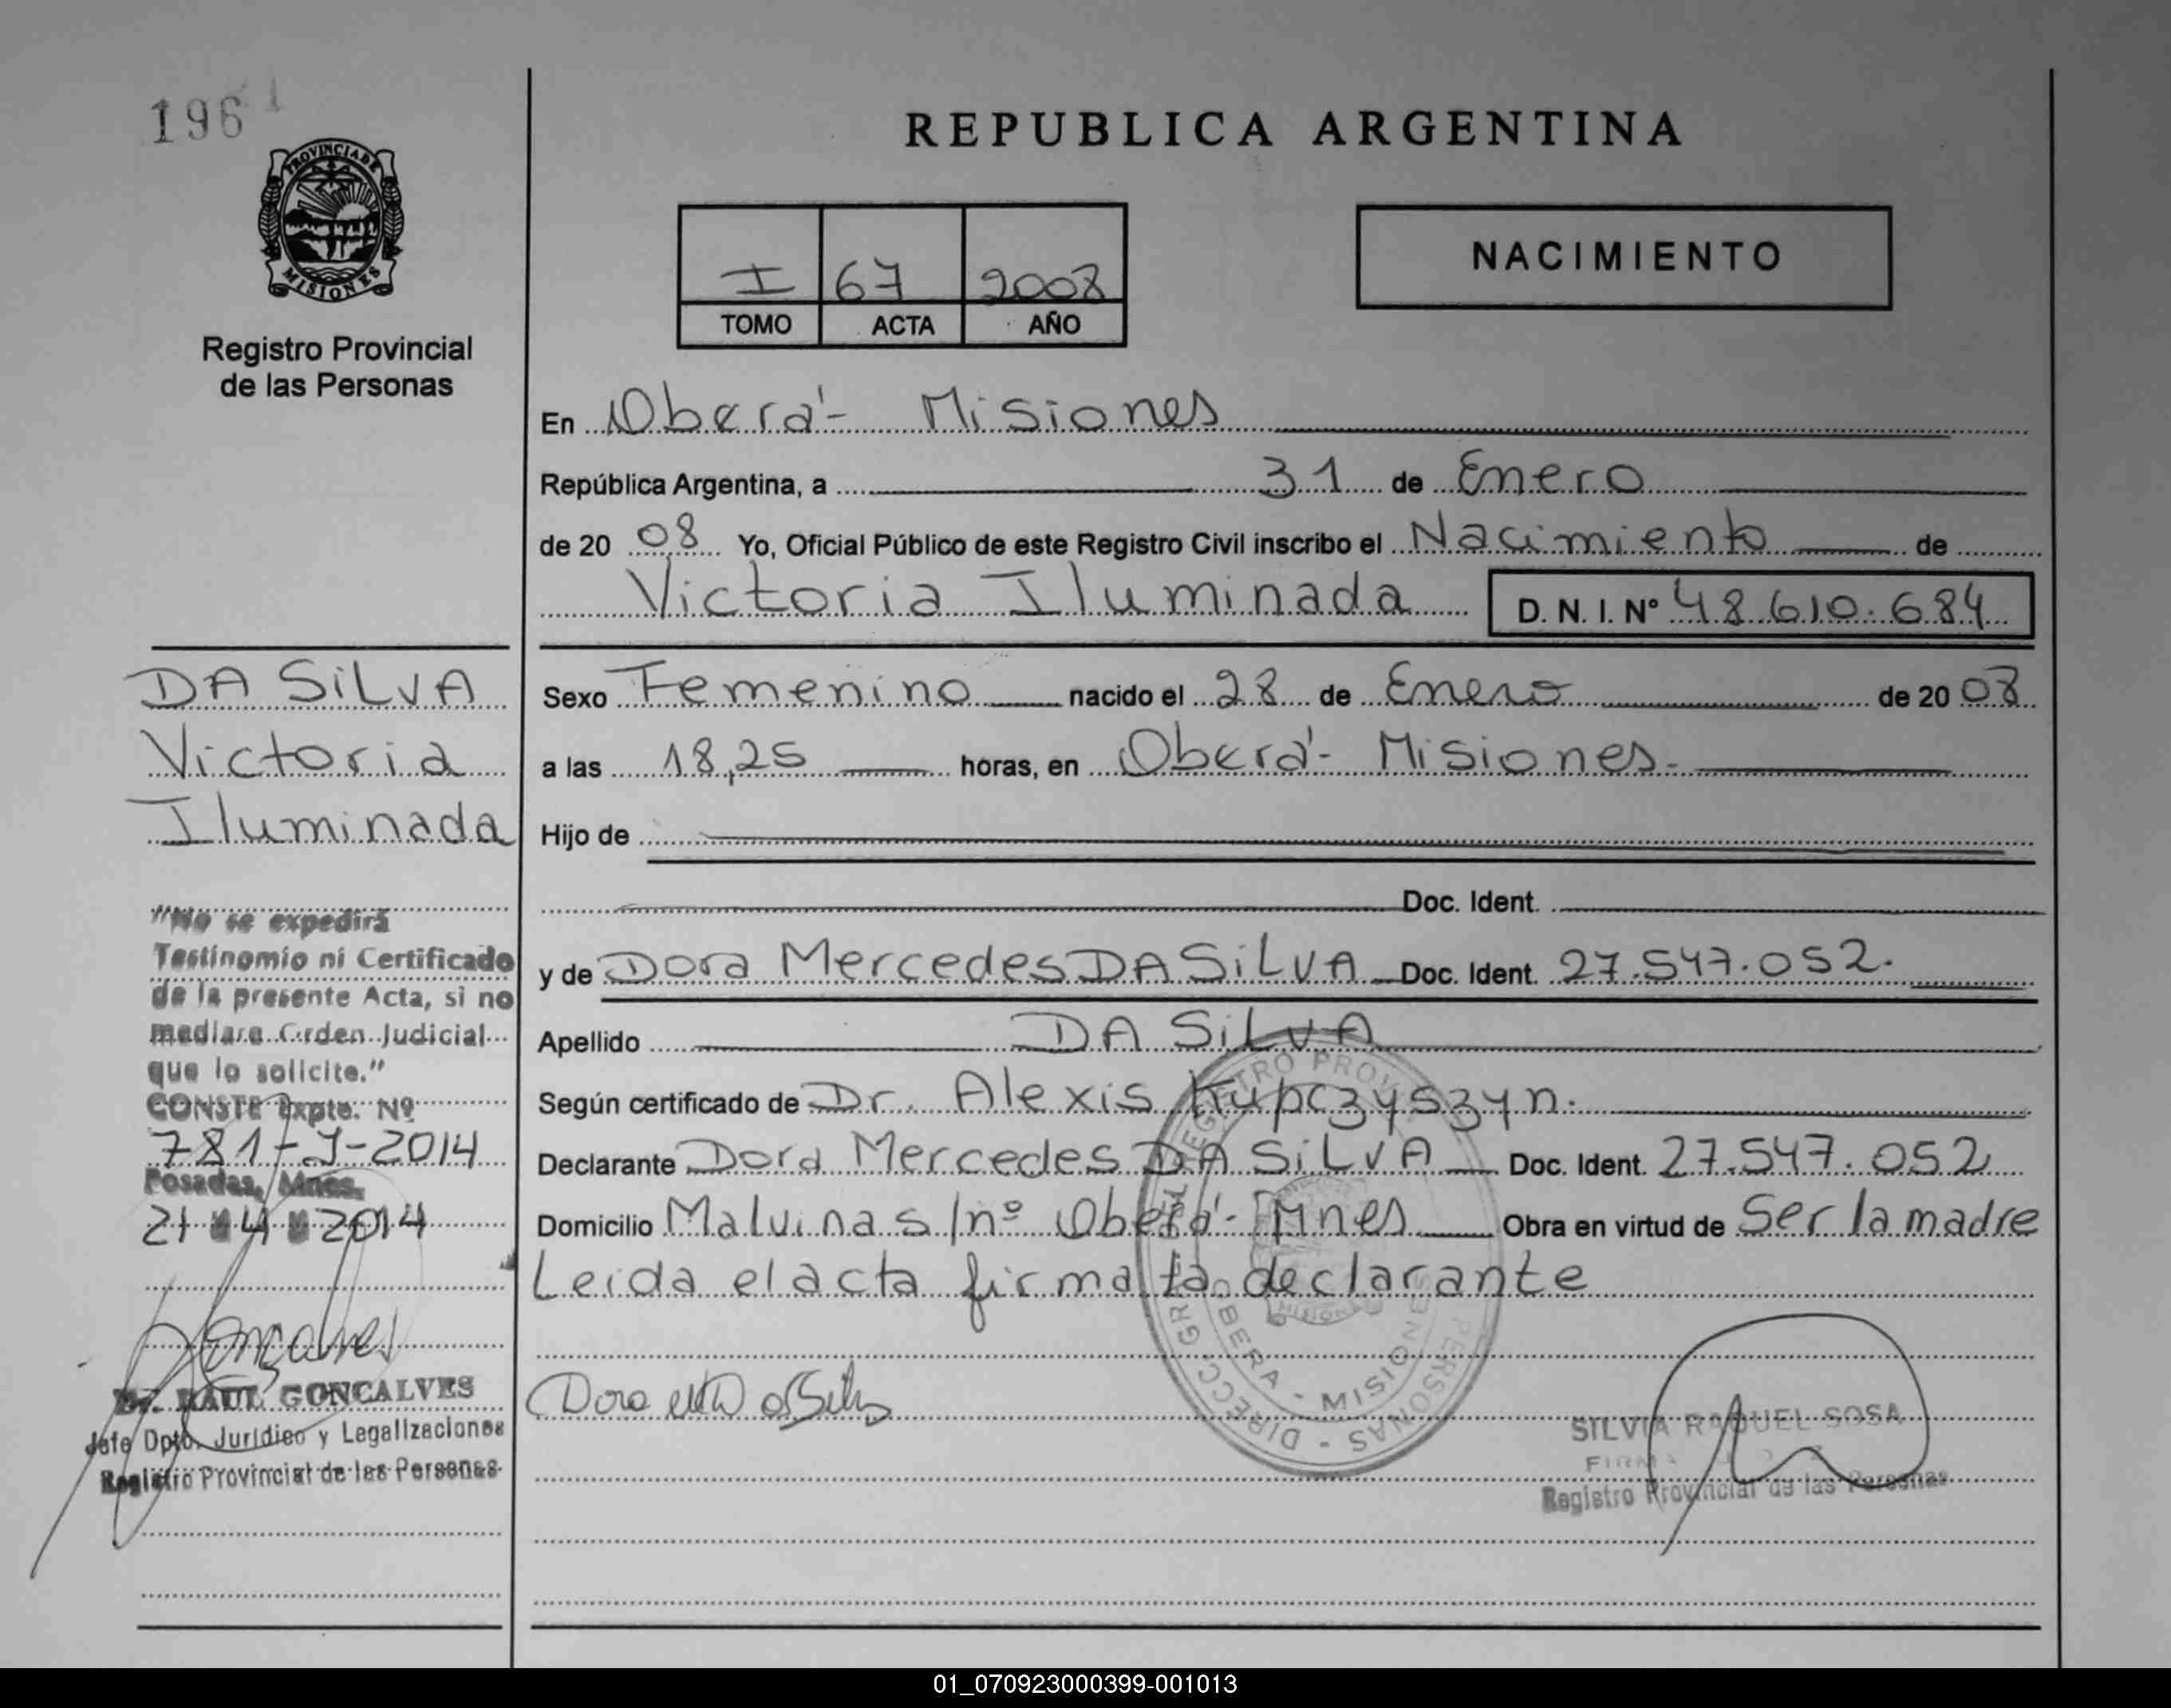 1961
PROVINCIA DE
MISIONES
Registro Provincial
de las Personas
REPUBLICA ARGENTINA
I 67 2008
TOMO ACTA AÑO
NACIMIENTO
En Oberá - Misiones
República Argentina, a 31 de Enero
de 20 08 Yo, Oficial Público de este Registro Civil inscribo el Nacimiento de
Victoria Iluminada D. N. I. Nº 48.610.684
DA SiLVA
Victoria
Iluminada
Sexo Femenino nacido el 28 de Enero de 20 08
a las 18,25 horas, en Oberá - Misiones.
Hijo de
Doc. Ident.
y de Dora Mercedes DA SiLVA Doc. Ident. 27.547.052.
Apellido DA SiLVA
Según certificado de Dr. Alexis Kupczyszyn.
Declarante Dora Mercedes DA SiLVA Doc. Ident. 27.547.052
Domicilio Malvinas s/nº Oberá - Mnes Obra en virtud de Ser la madre
Leida el acta firma la declarante
"No se expedirá
Testinomio ni Certificado
de la presente Acta, si no
mediare Orden Judicial
que lo solicite."
CONSTE Expte. Nº
781-J-2014
Posadas, Mnes.
21 4 2014
Goncalves
Dr. RAUL GONCALVES
Jefe Dpto. Jurídico y Legalizaciones
Registro Provincial de las Personas
OBERA - MISIONES
SILVIA RAQUEL SOSA
FIRMA
Registro Provincial de las Personas
01_070923000399-001013